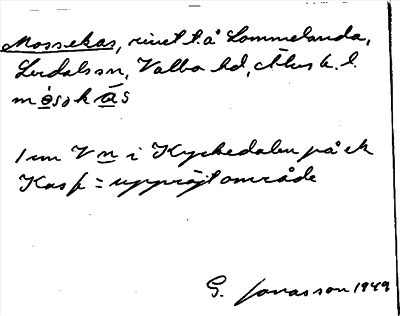 Mossekas, rivet t. å Lommelanda,
Lerdalssn, Valbo hd, Älvsb. l.
mósəkás
1 km V n i Kyrkedalen på ek
Kas f = uppröjt område
G. Jonasson 1949